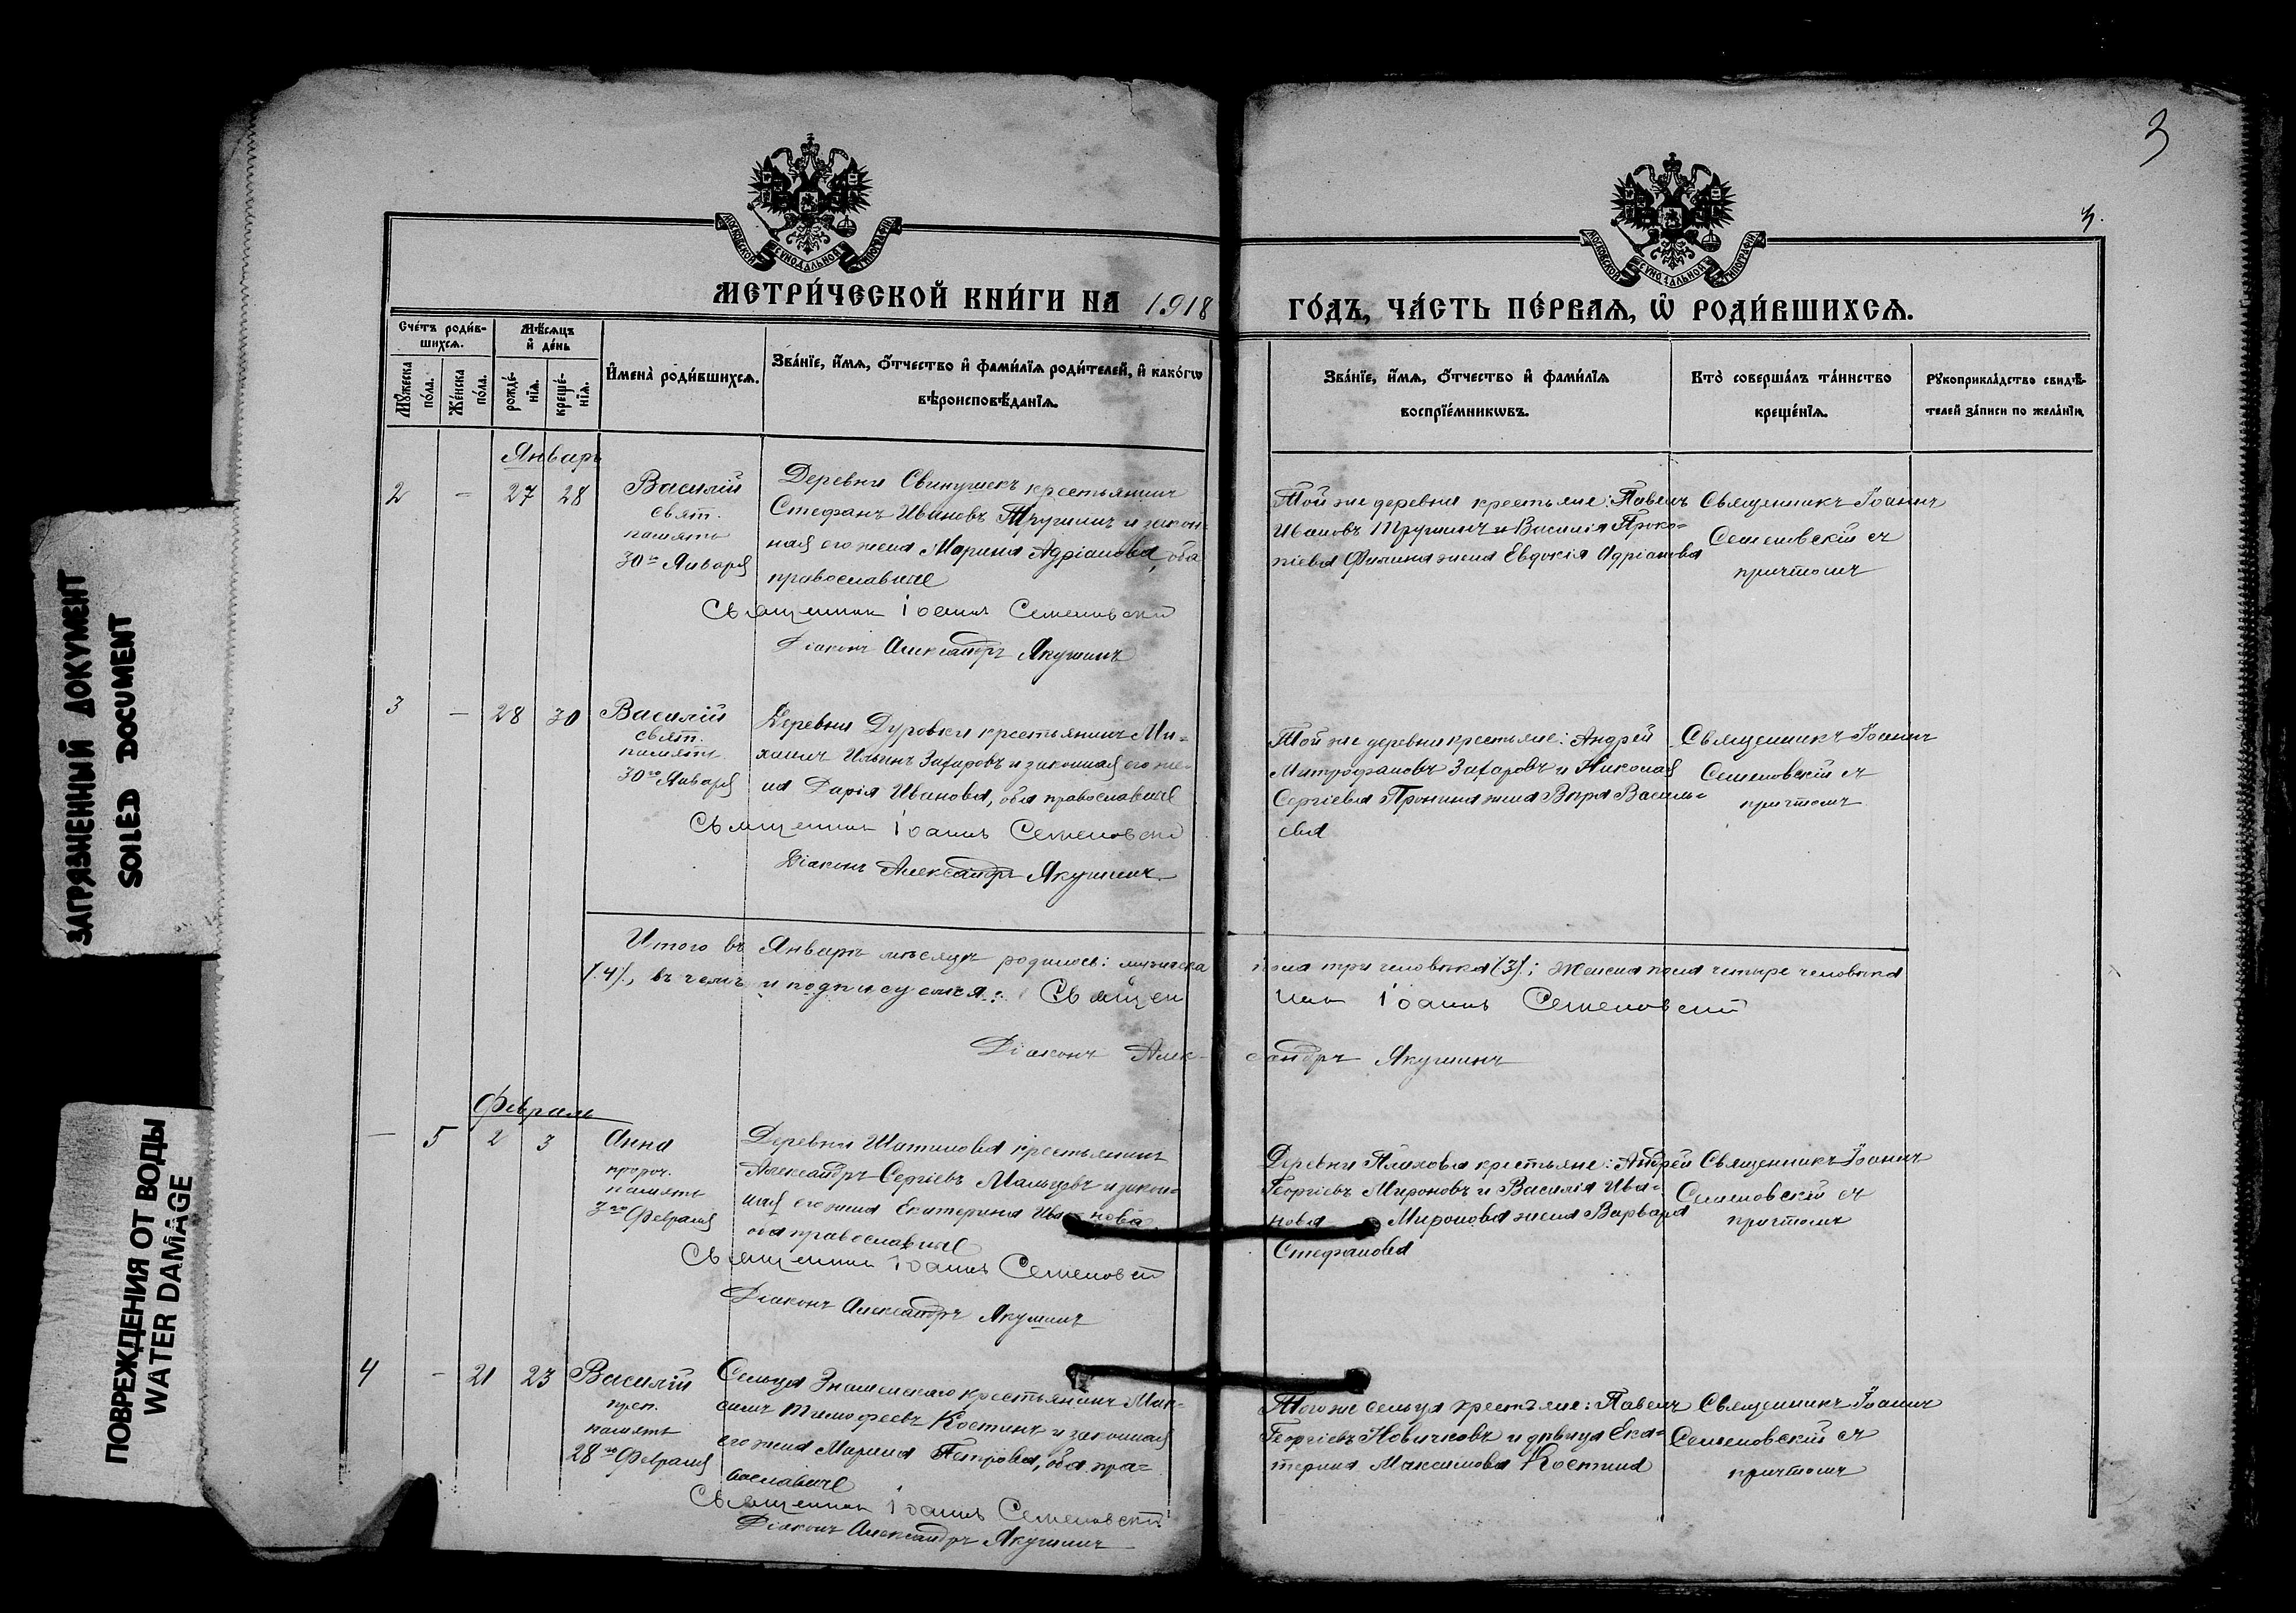 ЗАГРЯЗНЕННЫЙ ДОКУМЕНТ
SOILED DOCUMENT
ПОВРЕЖДЕНИЯ ОТ ВОДЫ
WATER DAMAGE
3
3.
МОСКОВСКОЙ СУНОДАЛЬНОЙ ТИПОГРАФІИ
МОСКОВСКОЙ СУНОДАЛЬНОЙ ТИПОГРАФІИ
МЕТРИ́ЧЕСКОЙ КНИ́ГИ НА 1918
ГО́ДЪ, ЧА́СТЬ ПЕ́РВАѦ, Ѡ҆ РОДИ́ВШИХСѦ.
Сче́тъ роди́в-
шихсѧ.
Мѣ́сѧцъ
и҆ де́нь
Мꙋ́жеска
по́ла.
Же́нска
по́ла.
рожде́-
нїѧ.
креще́-
нїѧ.
И҆мена̀ роди́вшихсѧ.
Зва́нїе, и҆́мѧ, ѻ҆́тчество и҆ фами́лїѧ роди́телей, и҆ како́гѡ
вѣроисповѣ́данїѧ.
Зва́нїе, и҆́мѧ, ѻ҆́тчество и҆ фами́лїѧ
воспрїе́мникѡвъ.
Кто̀ соверша́лъ та́инство
креще́нїѧ.
Рꙋкоприкла́дство свидѣ́-
телей за́писи по жела́нїю.
Январь
2 - 27 28
Василій
свят.
память
30го Января
Деревни Свинушекъ крестьянинъ
Стефанъ Ивановъ Трушинъ и закон-
ная его жена Марина Адріанова, оба
православные
Священник Іоаннъ Семеновскій
Діаконъ Александръ Якушинъ
Той же деревни крестьяне: Павелъ
Ивановъ Трушинъ и Василія Проко-
піева Филина жена Евдокія Адріанова
Священникъ Іоаннъ
Семеновскій съ
причтомъ
3 - 28 30
Василій
свят.
память
30го Января
Деревни Дуровки крестьянинъ Ми-
хаилъ Ильинъ Захаровъ и законная его же-
на Дарія Иванова, оба православные
Священник Іоаннъ Семеновскій
Діаконъ Александръ Якушинъ
Той же деревни крестьяне: Андрей
Митрофановъ Захаровъ и Николая
Сергіева Пронина жена Вѣра Василь-
ева
Священникъ Іоаннъ
Семеновскій съ
причтомъ
Итого въ Январѣ мѣсяцѣ родилось: мужеска пола три человѣка (3); женска пола четыре человѣка
(4), въ чемъ и подписуемся: Священник Іоаннъ Семеновскій
Діаконъ Александръ Якушинъ
Февраль
- 5 2 3
Анна
пророч.
память
3го Февраля
Деревни Шатилова крестьянинъ
Александръ Сергіевъ Мальцевъ и закон-
ная его жена Екатерина Иванова
оба православные
Священник Іоаннъ Семеновскій
Діаконъ Александръ Якушинъ
Деревни Плахова крестьяне: Андрей
Георгіевъ Мироновъ и Василія Ива-
нова Миронова жена Варвара
Стефанова
Священникъ Іоаннъ
Семеновскій съ
причтомъ
4 - 21 23
Василій
преп.
память
28го Февраля
Сельца Знаменскаго крестьянинъ Мак-
симъ Тимофеевъ Костинъ и законная
его жена Марина Петрова, оба пра-
вославные
Священник Іоаннъ Семеновскій
Діаконъ Александръ Якушинъ
Того же сельца крестьяне: Павелъ
Георгіевъ Новичковъ и дѣвица Ека-
терина Максимова Костина
Священникъ Іоаннъ
Семеновскій съ
причтомъ